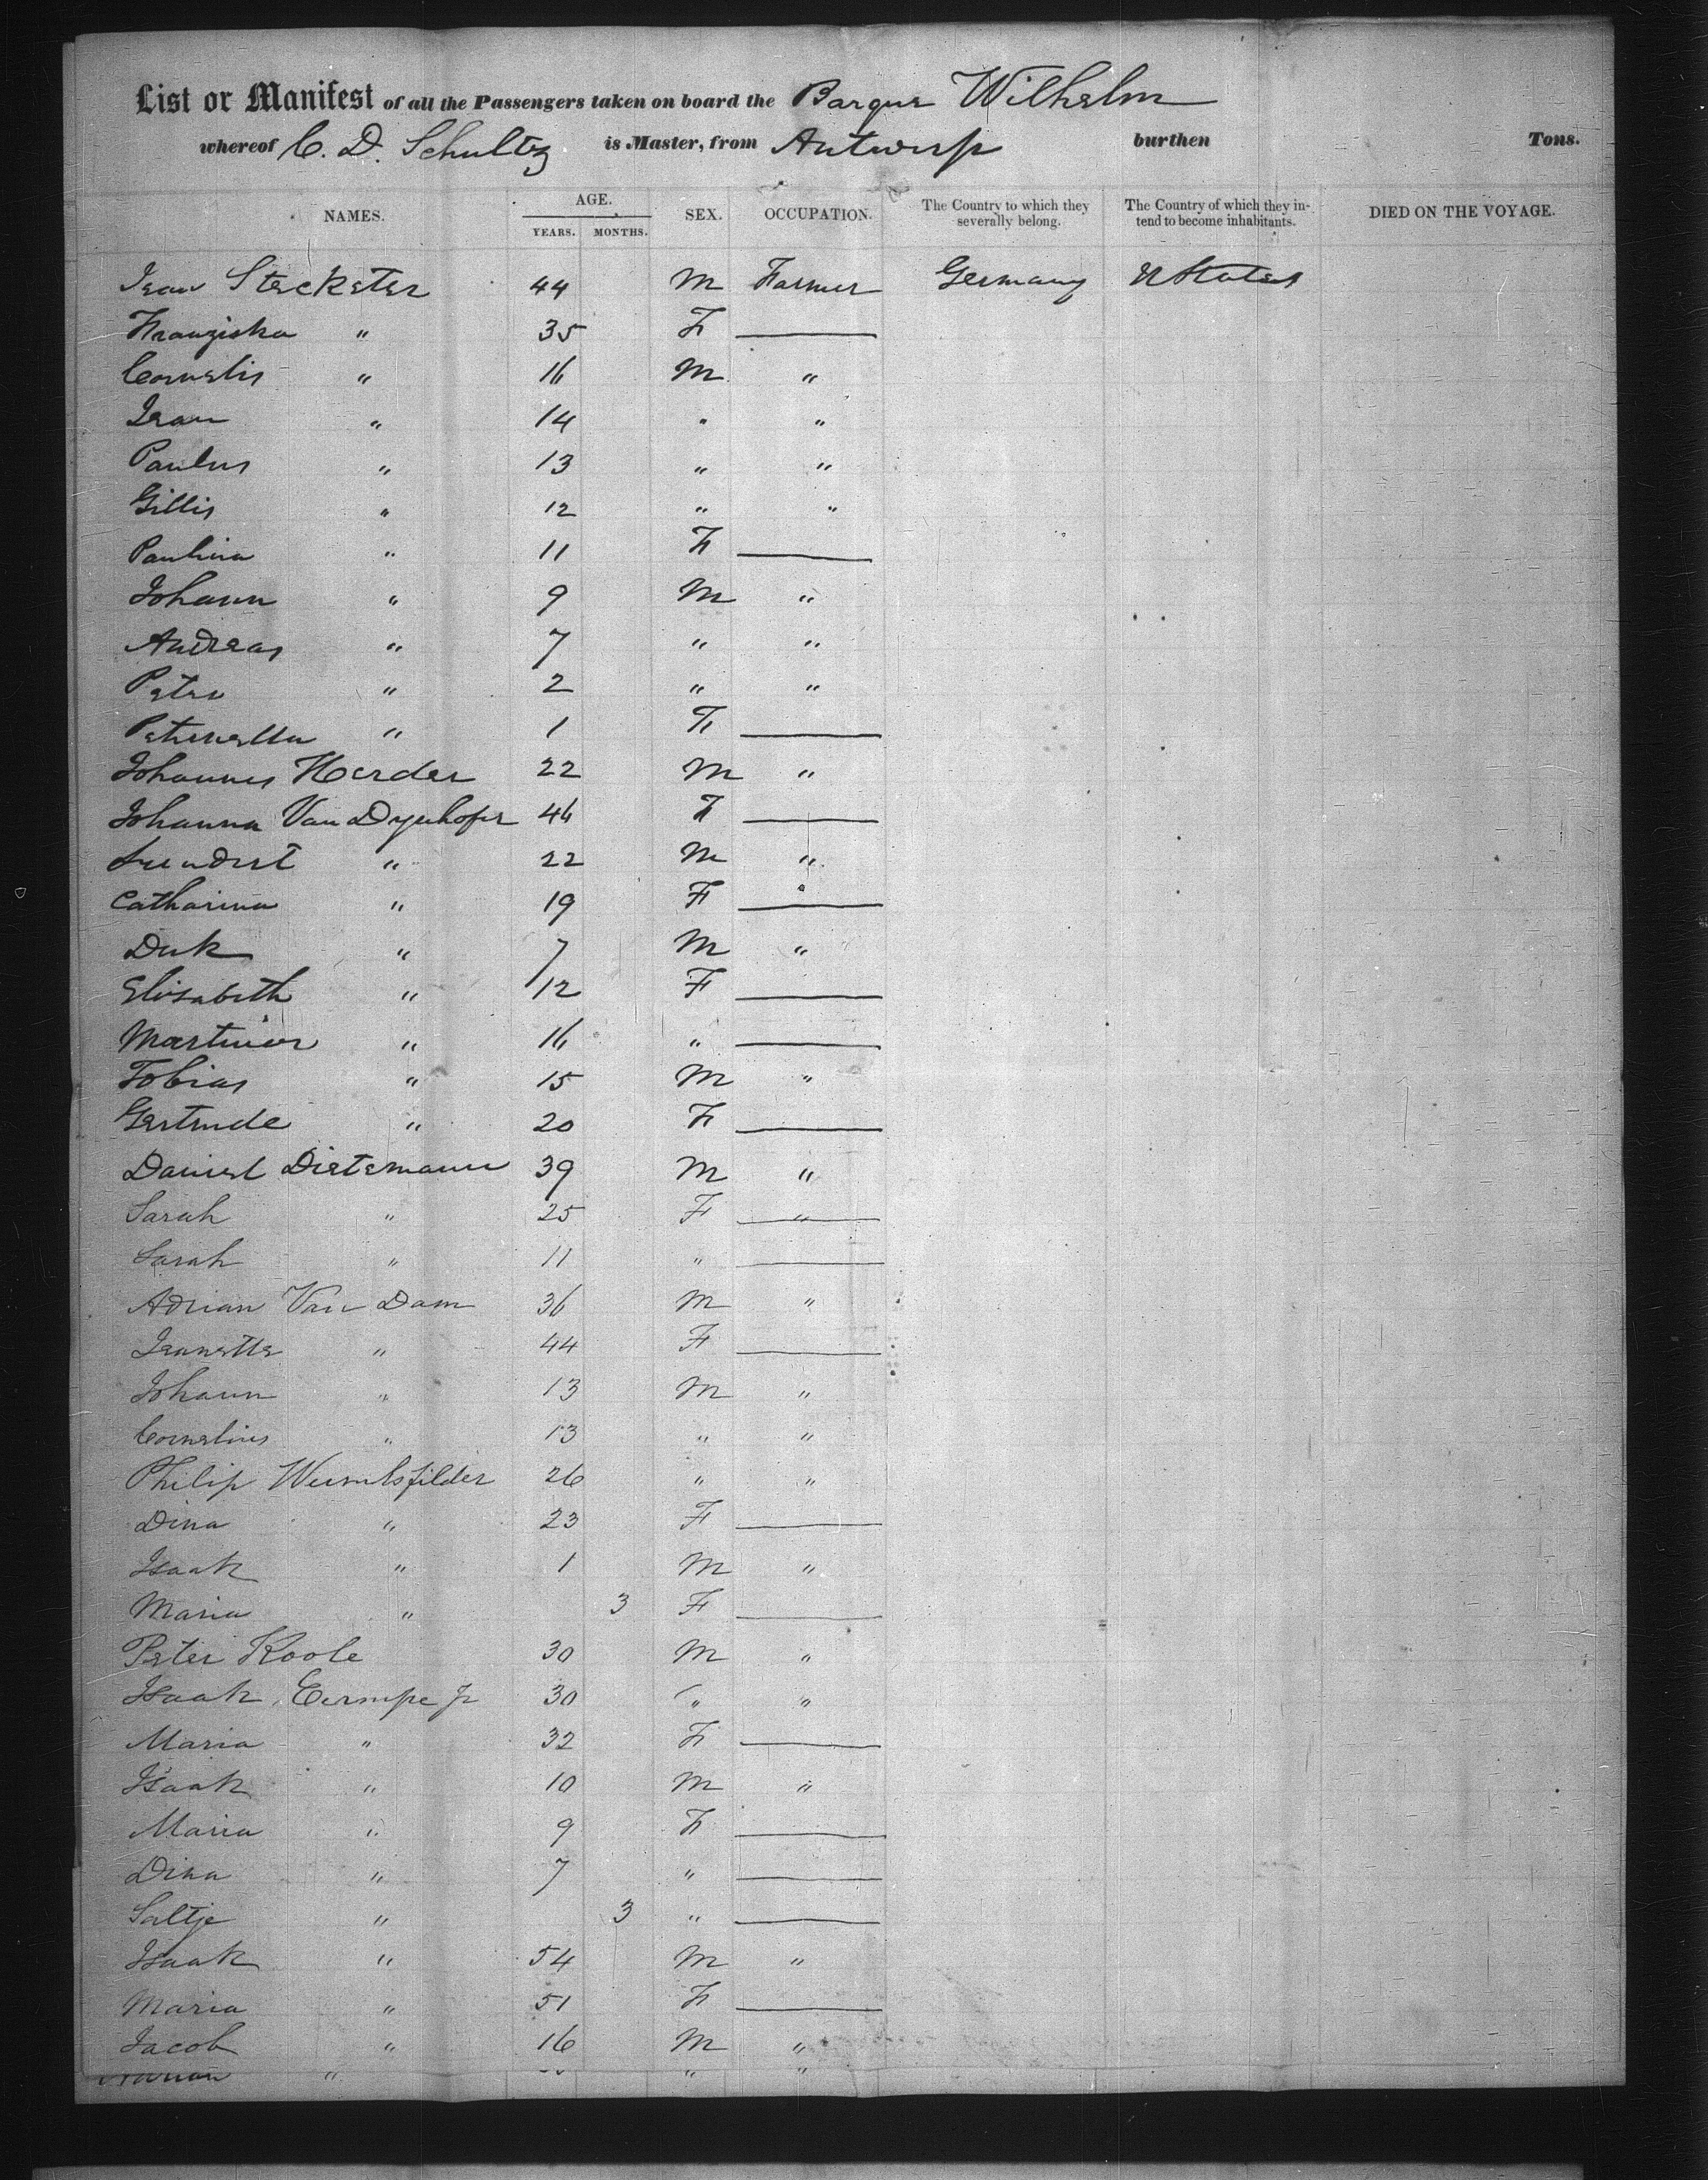 List or Manifest of all the Passengers taken on board the Barque Wilhelm
whereof C. D. Schultz is Master, from Antwerp burthen Tons.
NAMES. AGE. YEARS. MONTHS. SEX. OCCUPATION. The Country to which they severally belong. The Country of which they intend to become inhabitants. DIED ON THE VOYAGE.
Jean Steckster 44 M Farmer Germany U States
Franziska " 35 F
Cornelis " 16 M "
Jean " 14 " "
Paulus " 13 " "
Gillis " 12 " "
Paulina " 11 F
Johann " 9 M "
Andreas " 7 " "
Peter " 2 " "
Petronella " 1 F
Johannes Herder 22 M "
Johanna Van 46 F
" 22 M "
Catharina " 19 F
Dirk " 7 M "
Elisabeth " 12 F
" 16 "
Tobias " 15 M "
Gertrude " 20 F
Daniel Dietemann 39 M "
Sarah " 25 F "
Sarah " 11 "
Adrian Van Dam 36 M "
Jeanette " 44 F
Johann " 13 M "
Cornelius " 13 " "
Philip 26 " "
Dina " 23 F
Isaak " 1 M "
Maria " 3 F
Peter Koole 30 M "
Isaak Jr 30 " "
Maria " 32 F
Isaak " 10 M "
Maria " 9 F
Dina " 7 "
Saltje " 3 "
Isaak " 54 M "
Maria " 51 F
Jacob " 16 M "
" " "